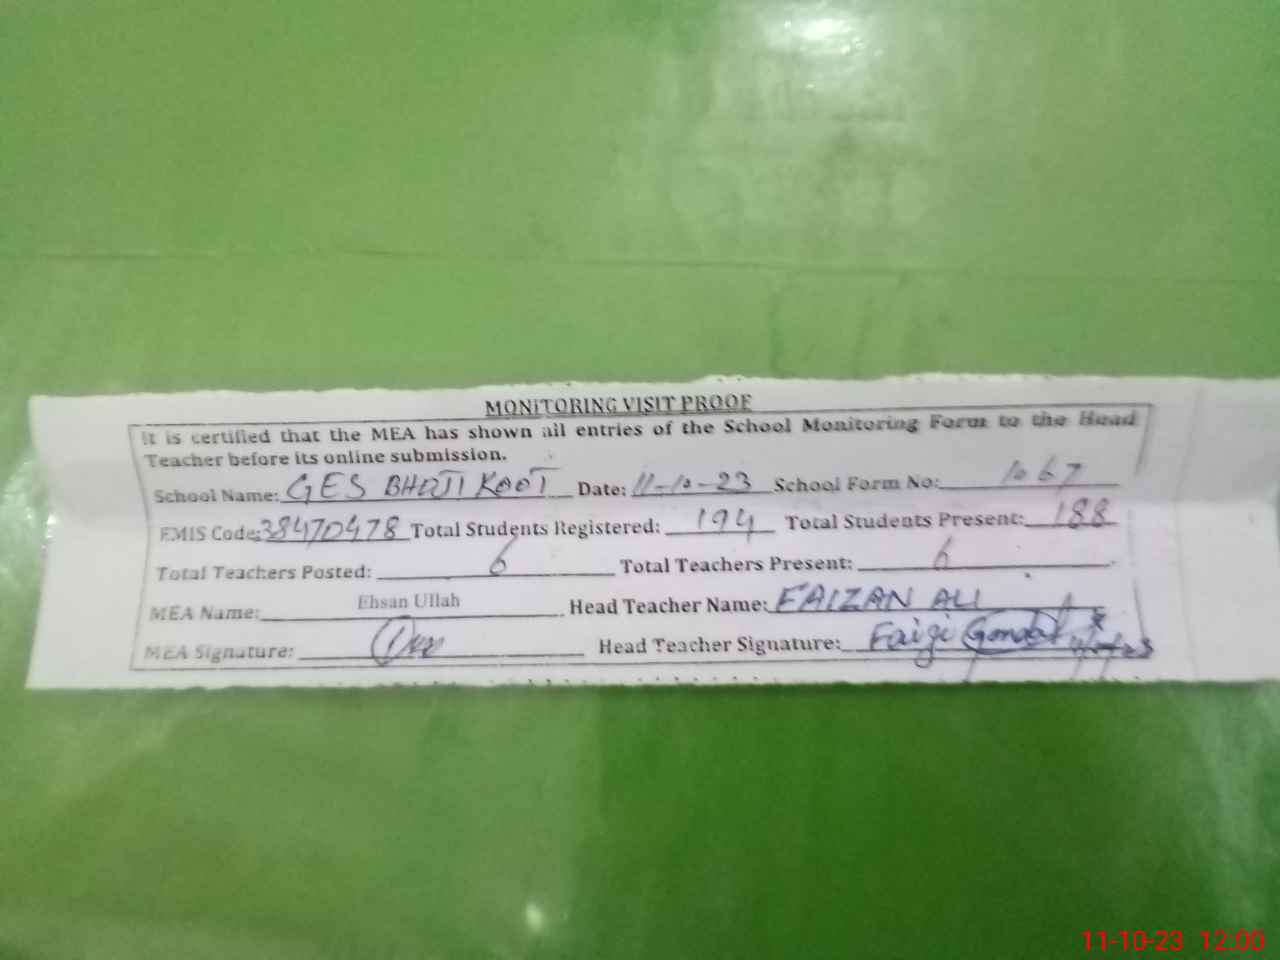 MONITORING VISIT PROOF
It is certified that the MEA has shown all entries of the School Monitoring Form to the Head
Teacher before its online submission.
School Name: GES BHOJI KOOT Date: 11-10-23 School Form No: 1067
EMIS Code: 38470478 Total Students Registered: 194 Total Students Present: 188
Total Teachers Posted: 6 Total Teachers Present: 6
MEA Name: Ehsan Ullah Head Teacher Name: FAIZAN ALI
MEA Signature: Head Teacher Signature: Faizi Gondal
11-10-23 12:00